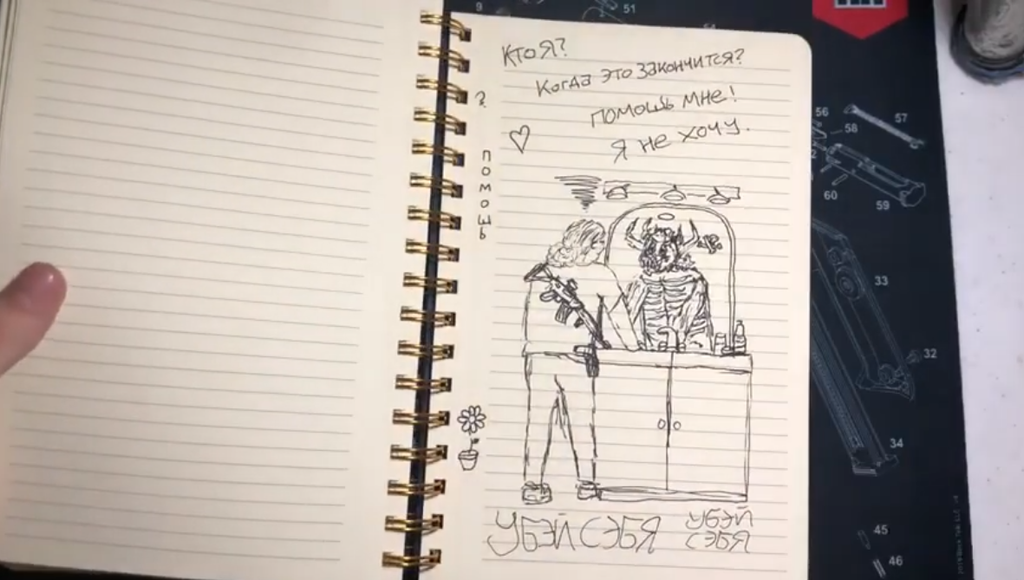 Кто я?
Когда это закончится?
помошь мне!
я не хочу.
?
помошь
Убэй сэбя
Убэй
сэбя
9
51
56
57
58
60
59
33
32
34
45
46